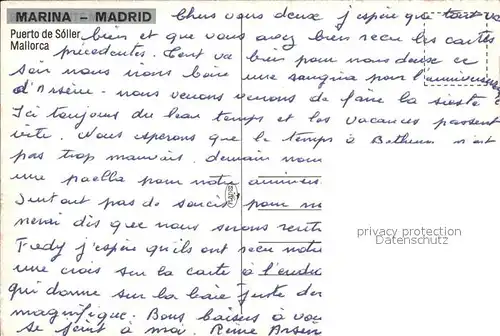 MARINA – MADRID
Puerto de Sóller
Mallorca
Chers vous deux j'espère que tout va
bien et que vous avez bien reçu les cartes
précédentes. Tout va bien pour nous deux ce
soir nous irons boire une sangria pour l'anniversaire
d'Arsène - nous venons de faire la sieste
Ici toujours du beau temps et les vacances passent
vite. Nous espérons que le temps à Béthune n'est
pas trop mauvais. demain nous
une paella pour notre annivers
Surtout pas de soucis pour m
nerai dis que nous serons rentr
Fredy j'espère qu'ils ont reçu notre
une crois sur la carte à l'endro
qui donne sur la baie juste de
magnifique. Bons baisers à vou
se joint à moi. Reine Arsen
privacy protection
Datenschutz